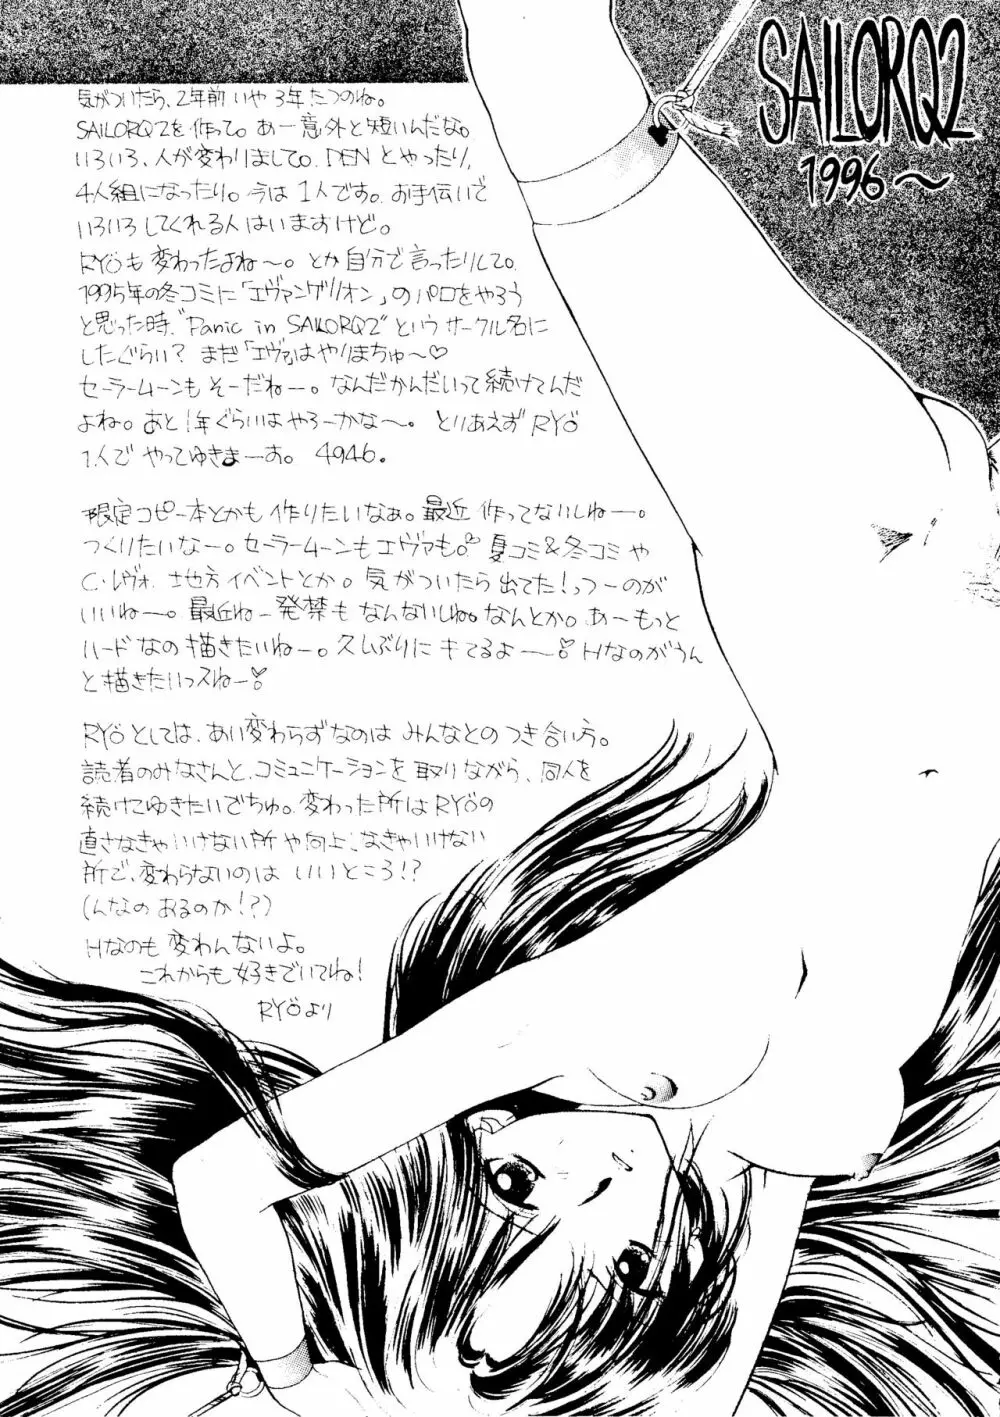 SAILORQ2
1996〜
気がついたら、2年前いや3年たつのね。
SAILORQ2を作って。あー意外と短いんだな。
いろいろ、人が変わりまして。DENとやったり、
4人組になったり。今は1人です。お手伝いで
いろいろしてくれる人はいますけど。
RYÖも変わったよね〜。とか自分で言ったりして。
1995年の冬コミに「エヴァンゲリオン」のパロをやろう
と思った時、"Panic in SAILORQ2"というサークル名に
したぐらい？まだ「エヴァ」はやりまちゅ〜♡
セーラームーンもそーだねー。なんだかんだいって続けてんだ
よね。あと1年ぐらいはやろーかな〜。とりあえずRYÖ
1人でやってゆきまーす。4946。
限定コピー本とかも作りたいなぁ。最近作ってないしねー。
つくりたいなー。セーラームーンもエヴァも。夏コミ&冬コミや
C・レヴォ、地方イベントとか。気がついたら出てた!っつーのが
いいねー。最近ねー発禁もなんないしね。なんとか。あーもっと
ハードなの描きたいねー。久しぶりにキてるよ〜♡Hなのがうん
と描きたいっスねー♡
RYÖとしては、あい変わらずなのはみんなとのつき合い方。
読者のみなさんと、コミュニケーションを取りながら、同人を
続けてゆきたいでちゅ。変わった所はRYÖの
直さなきゃいけない所や向上しなきゃいけない
所で、変わらないのはいいところ!?
(んなのあるのか!?)
Hなのも変わんないよ。
これからも好きでいてね!
RYÖより